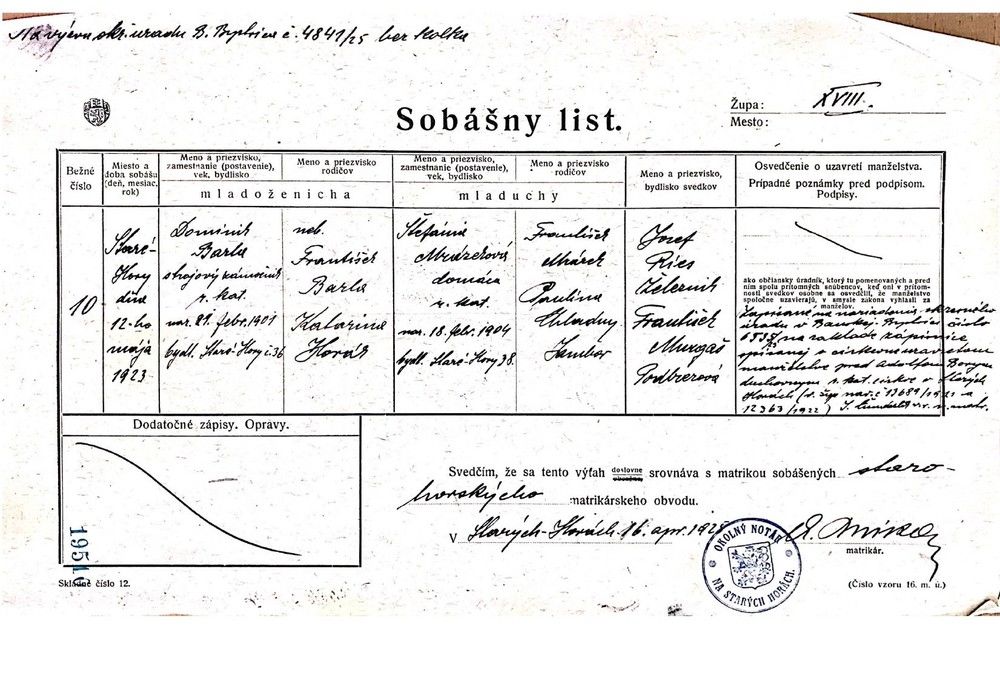 Na výzvu okr. úradu B. Bystrica č. 4841/25 bez kolka
Sobášny list.
Župa: XVIII.
Mesto:
Bežné číslo
Miesto a doba sobášu (deň, mesiac, rok)
Meno a priezvisko, zamestnanie (postavenie), vek, bydlisko
Meno a priezvisko rodičov
mladoženicha
Meno a priezvisko, zamestnanie (postavenie), vek, bydlisko
Meno a priezvisko rodičov
mladuchy
Meno a priezvisko, bydlisko svedkov
Osvedčenie o uzavretí manželstva.
Prípadné poznámky pred podpisom.
Podpisy.
10
Staré-
Hory
dňa
12-ho
mája
1923
Dominik
Barla
strojový kámenník
r. kat.
nar. 21. febr. 1901
bydl. Staré-Hory č. 36
neb.
František
Barla
Katarina
Horák
Štefánia
Mrázeková
domáca
r. kat.
nar. 18. febr. 1904
bydl. Staré-Hory 38.
František
Mrázek
Paulina
Jozef
Ries
František
Murgaš
ako občiansky úradník, ktorý tu pomenovaných a pred
ním spolu prítomných snúbencov, keď oni v prítom-
nosti svedkov osobne sa osvedčili, že manželstvo
spoločne uzavierajú, v smysle zákona vyhlásil za
manželov.
Zapísané na nariadenia okresného
úradu v Banskej Bystrici číslo
na základe zápisnice
spísanej o cirkevne uzavretom
manželstve pred Adolfom
duchovným r. kat. cirkve v Starých
Horách (v. žup. nar. č. 13689/1921 a
12363/1922)
Dodatočné zápisy. Opravy.
Svedčím, že sa tento výťah doslovne srovnáva s matrikou sobášených staro-
horského matrikárskeho obvodu.
V Starých-Horách 16. apr. 1925
matrikár.
OKOLNÝ NOTÁR
NA STARÝCH HORÁCH.
Skladné číslo 12.
(Číslo vzoru 16. m. ú.)